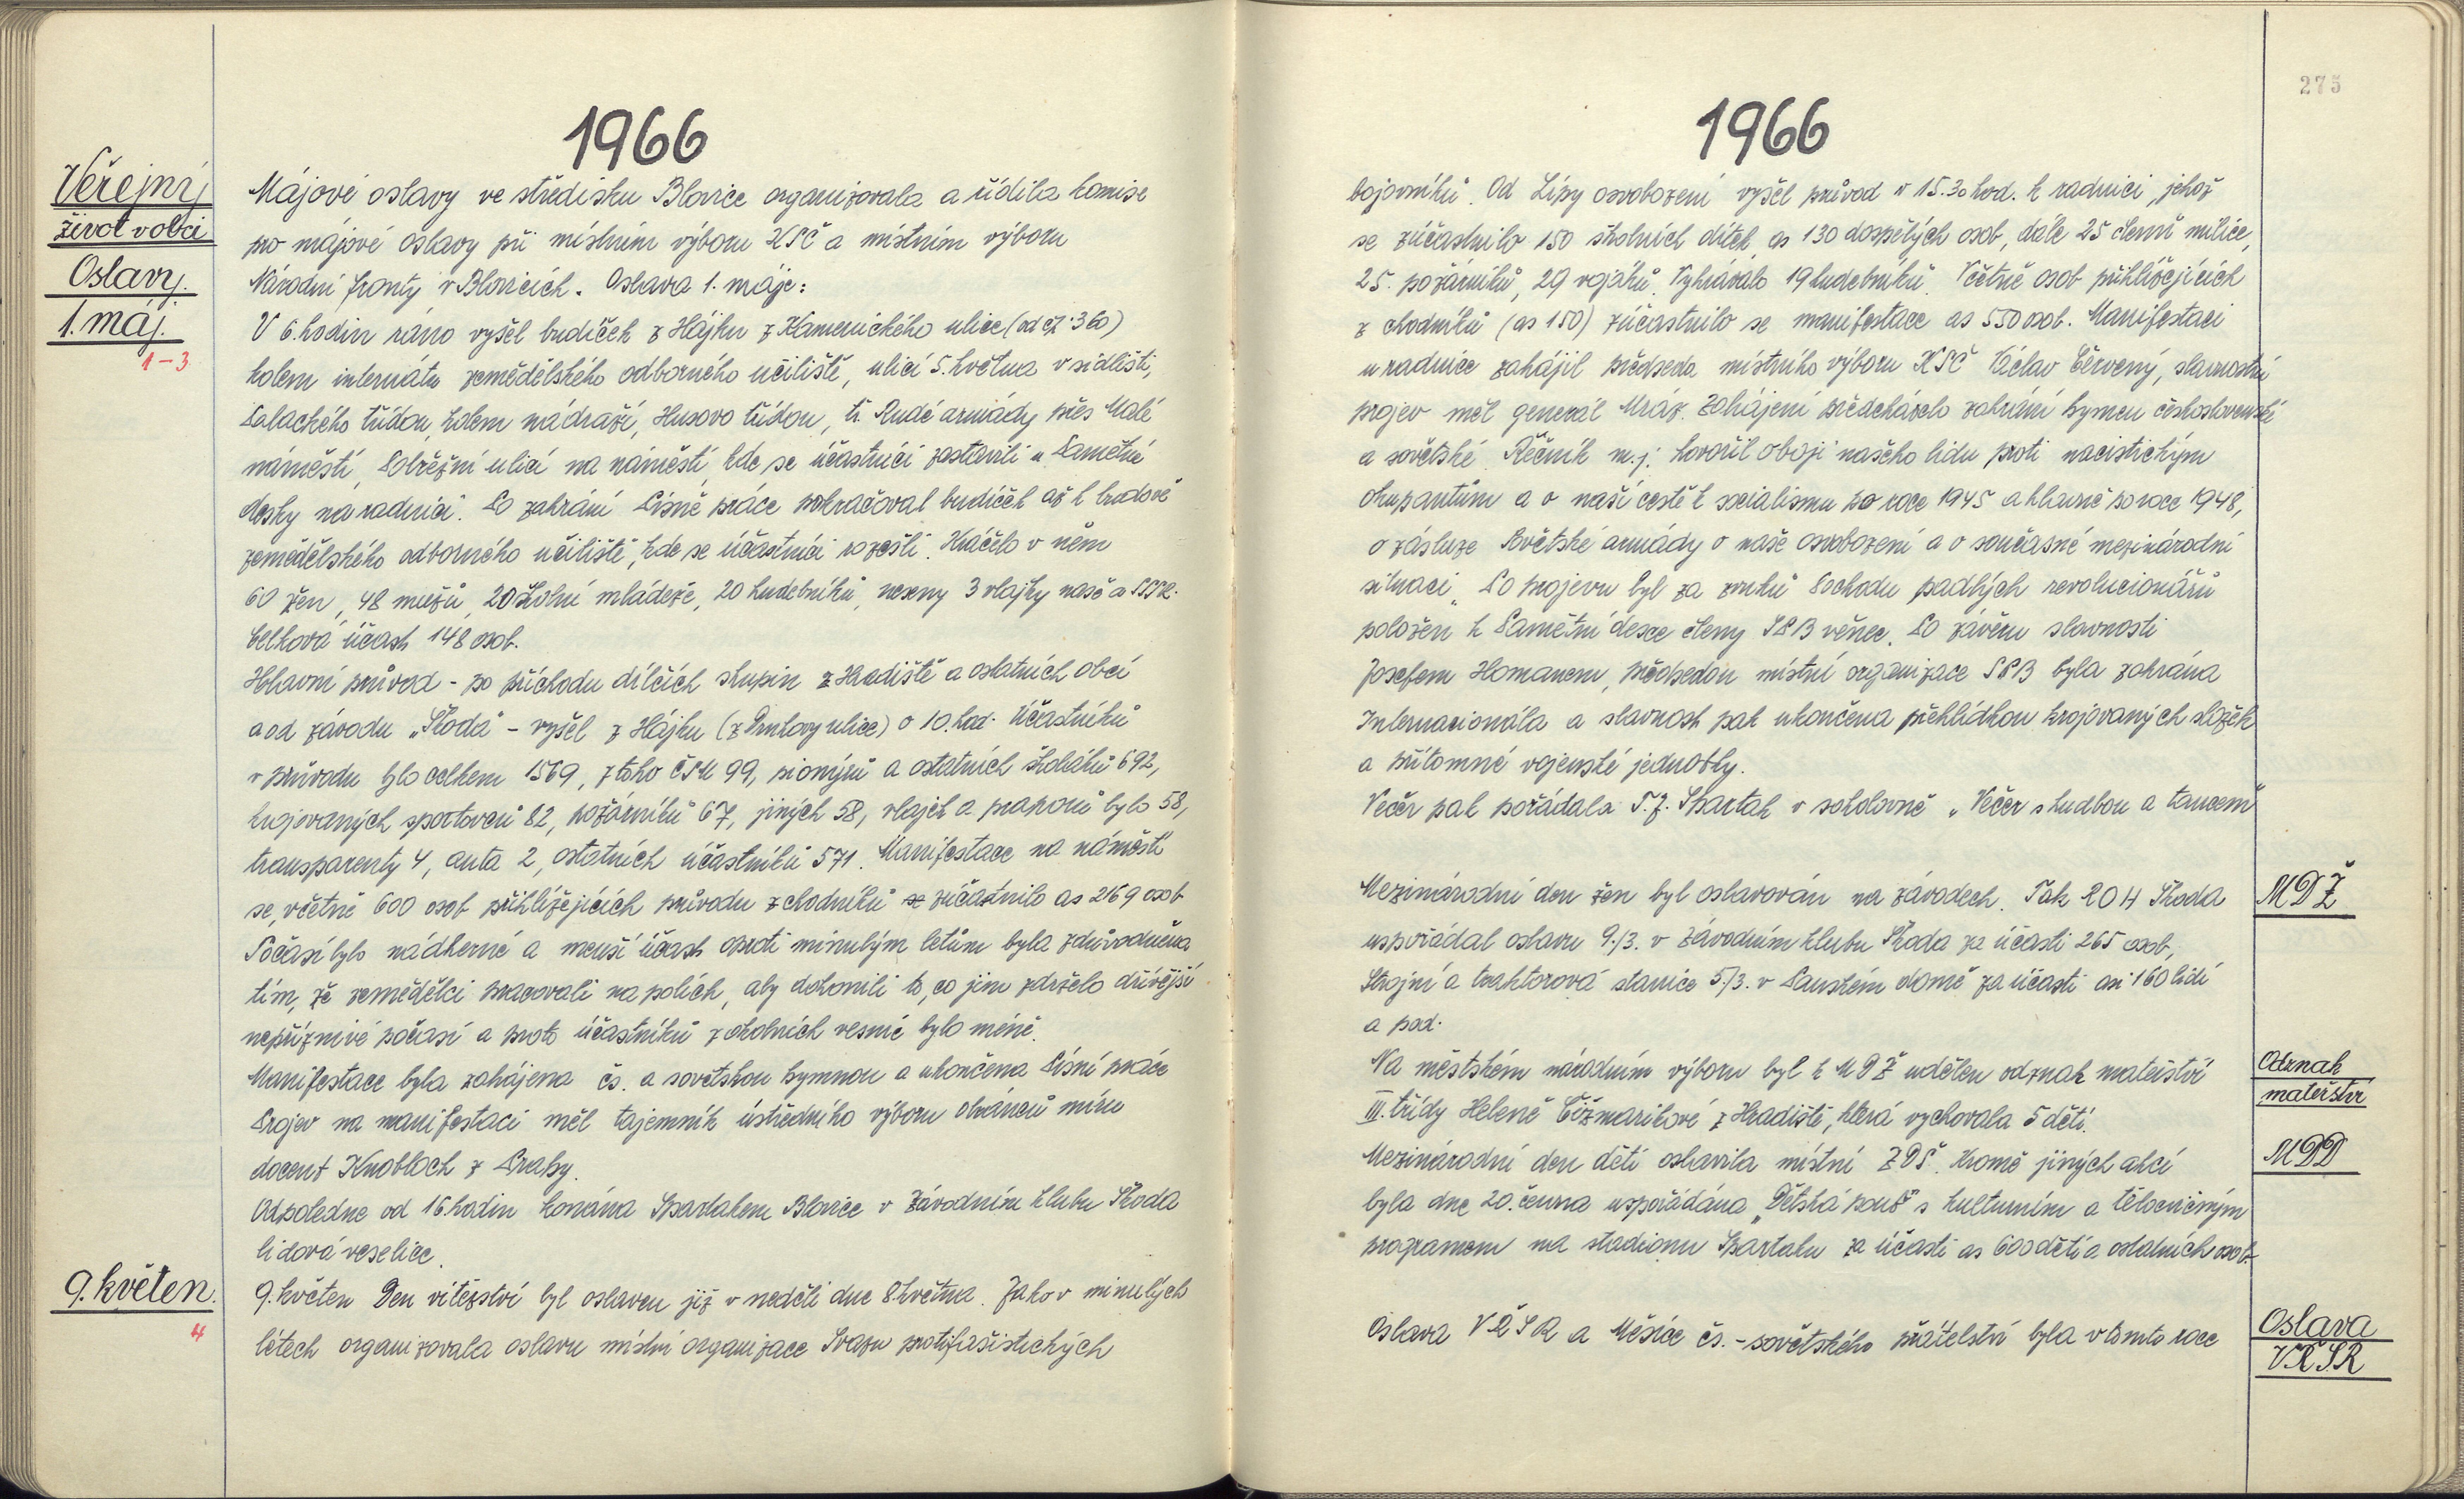 1966
Veřejný
život v obci
Oslavy.
1. máj.
1-3
Májové oslavy ve středisku Blovice organizovala a řídila komise
pro májové oslavy při místním výboru KSČ a místním výboru
Národní fronty v Blovicích. Oslava 1. máje:
V 6. hodin ráno vyšel budíček z Hájku z Kamenického ulice (od čp. 360)
kolem internátu zemědělského odborného učiliště, ulicí 5. května v sídlišti,
Palackého třídou, kolem nádraží, Husovo třídou, tř. Rudé armády přes Malé
náměstí, Pobřežní ulicí na náměstí, kde se účastníci zastavili u Pamětní
desky na radnici. Po zahrání Písně práce pokračoval budíček až k budově
zemědělského odborného učiliště, kde se účastníci rozešli. Kráčelo v něm
60 žen, 48 mužů, 20 školní mládeže, 20 hudebníků, neseny 3 vlajky naše a SSSR.
Celková účast 148 osob.
Hlavní průvod - po příchodu dílčích skupin z Hradiště a ostatních obcí
a od závodu „Škoda" - vyšel z Hájku (z Hrutovy ulice) o 10. hod. Účastníků
v průvodu bylo celkem 1569, z toho ČSM 99, pionýrů a ostatních školáků 692,
krojovaných sportovců 82, požárníků 67, jiných 58, vlajek a praporů bylo 58,
transparenty 4, auta 2, ostatních účastníků 571. Manifestace na náměstí
se, včetně 600 osob přihlížejících průvodu z chodníků se zúčastnilo as 2169 osob
Počasí bylo nádherné a menší účast oproti minulým letům byla zdůvodněna
tím, že zemědělci pracovali na polích, aby dohonili to, co jim zdrželo dřívější
nepříznivé počasí a proto účastníků z okolních vesnic bylo méně.
Manifestace byla zahájena čs. a sovětskou hymnou a ukončena Písní práce
Projev na manifestaci měl tajemník ústředního výboru obránců míru
docent Knobloch z Prahy.
Odpoledne od 16. hodin konána Spartakem Blovice v Závodním klubu Škoda
lidová veselice.
9. květen.
4
9. květen Den vítězství byl oslaven již v neděli dne 8. května. Jako v minulých
létech organizovala oslavu místní organizace Svazu protifašistických
275
1966
bojovníků. Od Lípy osvobození vyšel průvod v 15.30 hod. k radnici, jehož
se zúčastnilo 150 školních dítek, as 130 dospělých osob, dále 25 členů milice,
25. požárníků, 29 vojáků. Vyhrávalo 19 hudebníků. Včetně osob přihlížejících
z chodníků (as 150) zúčastnilo se manifestace as 550 osob. Manifestaci
u radnice zahájil předseda místního výboru KSČ Václav Červený, slavnostní
projev měl generál Mráz. Zahájení předcházelo zahrání hymen československé
a sovětské. Řečník m. j. hovořil o boji našeho lidu proti nacistickým
okupantům a o naší cestě k socialismu po roce 1945 a hlavně po roce 1948,
o zásluze Sovětské armády o naše osvobození a o současné mezinárodní
situaci. Po projevu byl za zvuků Pochodu padlých revolucionářů
položen k Pamětní desce členy SPB věnec. Po závěru slavnosti
Josefem Homanem, předsedou místní organizace SPB byla zahrána
Internacionála a slavnost pak ukončena přehlídkou krojovaných složek
a přítomné vojenské jednotky.
Večer pak pořádala T.J. Spartak v sokolovně „Večer s hudbou a tancem"
MDŽ
Mezinárodní den žen byl oslavován na závodech. Tak ROH Škoda
uspořádal oslavu 9./3. v Závodním klubu Škoda za účasti 265 osob,
Strojní a traktorová stanice 5./3. v Panském domě za účasti asi 160 lidí
a pod.
Odznak
mateřství
Na městském národním výboru byl k MDŽ udělen odznak mateřství
III. třídy Heleně Čižmarikové z Hradiště, která vychovala 5 dětí.
MDD
Mezinárodní den dětí oslavila místní ZDŠ. Kromě jiných akcí
byla dne 20. června uspořádána „Dětská pouť" s kulturním a tělocvičným
programem na stadionu Spartaku za účasti as 600 dětí a ostatních osob.
Oslava
VŘSR
Oslava VŘSR a Měsíce čs.-sovětského přátelství byla v tomto roce